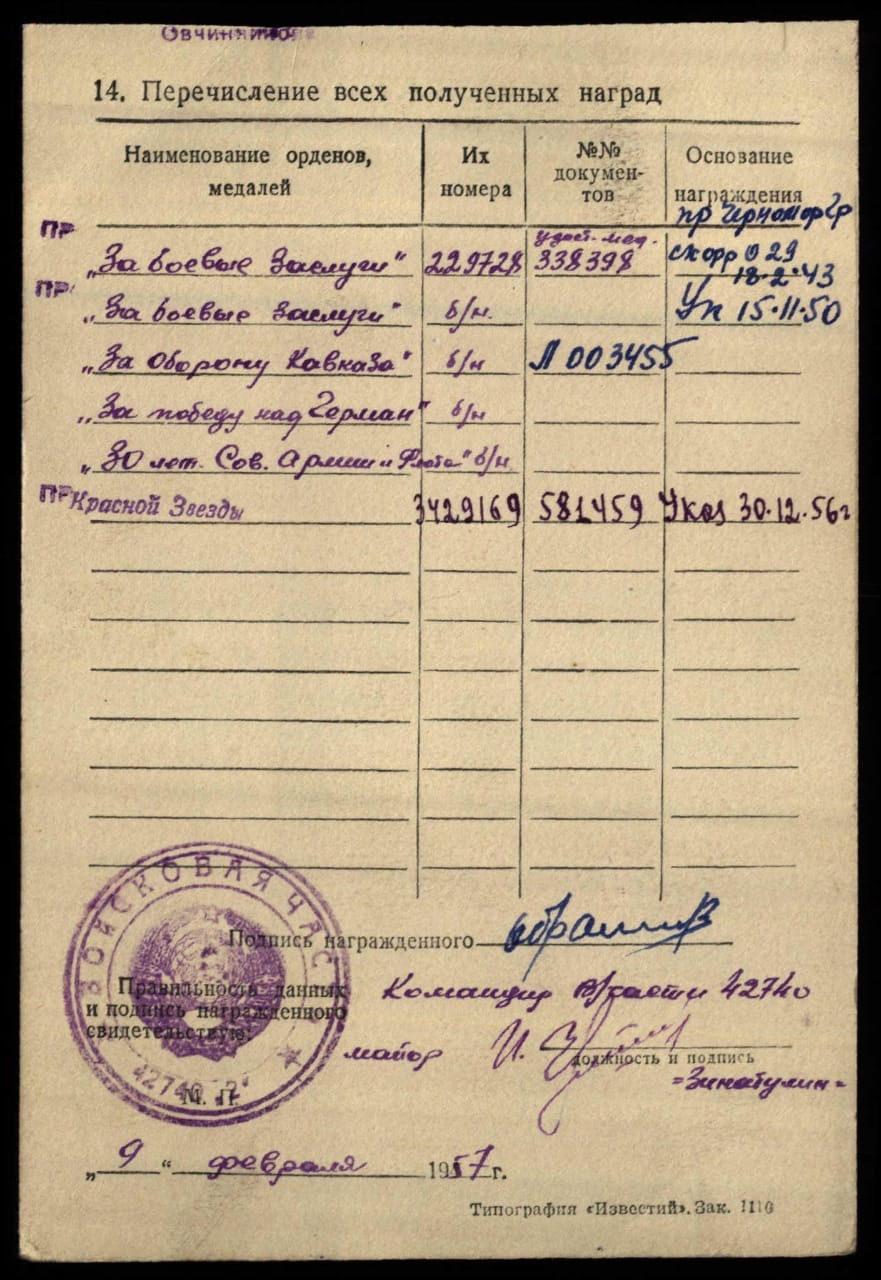 Овчинников
14. Перечисление всех полученных наград
Наименование орденов, медалей Их номера №№ докумен- тов Основание награждения
пр Черномор Гр
ПР „За боевые заслуги" 229728 удост. мед. 338398 029
18·2·43
ПР „За боевые заслуги" б/н. Ук 15·11·50
„За оборону Кавказа" б/н Л 003455
„За победу над Герман" б/н
„30 лет. Сов. Армии и Флота" б/н
ПР Красной Звезды 3429169 581459 Указ 30·12·56г
ВОЙСКОВАЯ ЧАСТ
Подпись награжденного
Правильность данных
и подпись награжденного
свидетельствую:
Командир в/части 42740
майор И.
должность и подпись
=Зинатулин=
42740
М. П.
„ 9 " февраля 1957 г.
Типография «Известий». Зак. 1110